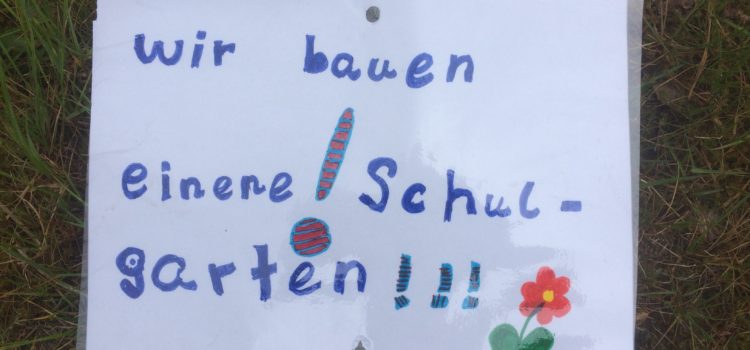 wir bauen
einene ! Schul-
garten !!!